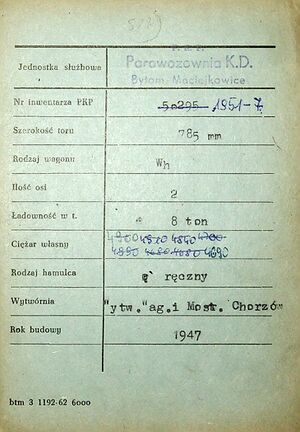 P.K.P.
Parowozownia K.D.
Bytom Maciejkowice
Jednostka służbowa
Nr inwentarza PKP 5n295 1951-7
Szerokość toru 785 mm
Rodzaj wagonu Wh
Ilość osi 2
Ładowność w t. 8 ton
Ciężar własny 4900 4510 4840 4700
4890 4680 4680 4690
Rodzaj hamulca ręczny
Wytwórnia "ytw."ag.i Most. Chorzów
Rok budowy 1947
btm 3 1192-62 6000